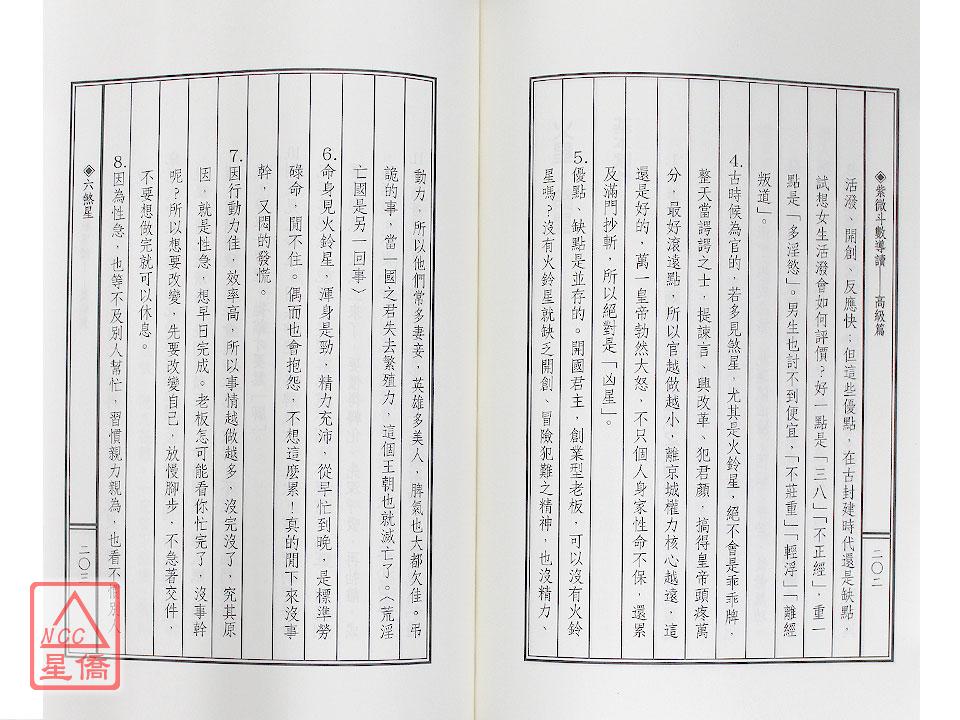 ◈紫微斗數導讀──高級篇
二○二
活潑、開創、反應快；但這些優點，在古封建時代還是缺點，
試想女生活潑會如何評價？好一點是「三八」「不正經」，重一
點是「多淫慾」。男生也討不到便宜，「不莊重」「輕浮」「離經
叛道」。
4.古時候為官的，若多見煞星，尤其是火鈴星，絕不會是乖乖牌，
整天當諤諤之士，提諫言、興改革、犯君顏，搞得皇帝頭疼萬
分，最好滾遠點，所以官越做越小，離京城權力核心越遠，這
還是好的，萬一皇帝勃然大怒，不只個人身家性命不保，還累
及滿門抄斬，所以絕對是「凶星」。
5.優點、缺點是並存的。開國君主，創業型老板，可以沒有火鈴
星嗎？沒有火鈴星就缺乏開創、冒險犯難之精神，也沒精力、
動力，所以他們常多妻妾，英雄多美人，脾氣也大都欠佳。弔
詭的事，當一國之君失去繁殖力，這個王朝也就滅亡了。〈荒淫
亡國是另一回事〉
6.命身見火鈴星，渾身是勁，精力充沛，從早忙到晚，是標準勞
碌命，閒不住。偶而也會抱怨，不想這麼累！真的閒下來沒事
幹，又悶的發慌。
7.因行動力佳，效率高，所以事情越做越多，沒完沒了，究其原
因，就是性急，想早日完成。老板怎可能看你忙完了，沒事幹
呢？所以想要改變，先要改變自己，放慢腳步，不急著交件，
不要想做完就可以休息。
8.因為性急，也等不及別人幫忙，習慣親力親為，也看不慣別人
◈六煞星
二○三
NCC
星僑